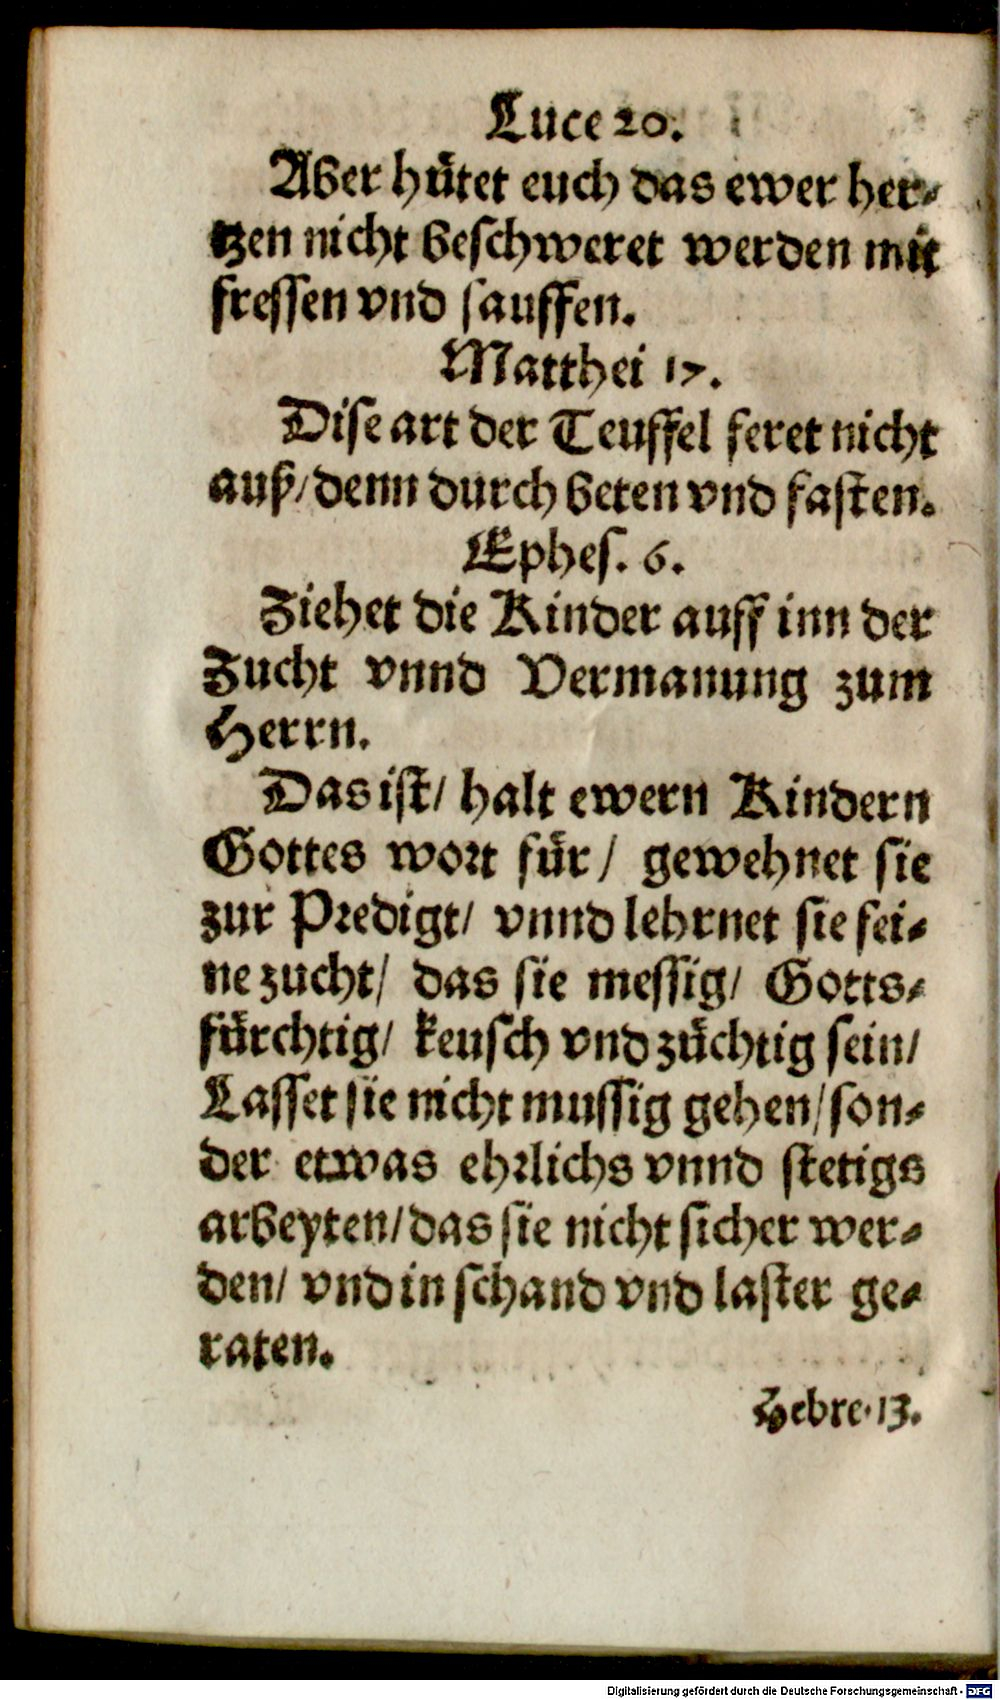 Luce 20.
Aber hütet euch das ewer her⸗
tzen nicht beschweret werden mit
fressen vnd sauffen.
Matthei 17.
Dise art der Teuffel feret nicht
auß/ denn durch beten vnd fasten.
Ephes. 6.
Ziehet die Kinder auff inn der
Zucht vnnd Vermanung zum
Herrn.
Das ist/ halt ewern Kindern
Gottes wort für/ gewehnet sie
zur Predigt/ vnnd lehrnet sie fei⸗
ne zucht/ das sie messig/ Gotts⸗
fürchtig/ keusch vnd züchtig sein/
Lasset sie nicht mussig gehen/ son⸗
der etwas ehrlichs vnnd stetigs
arbeyten/ das sie nicht sicher wer⸗
den/ vnd in schand vnd laster ge⸗
raten.
Hebre. 13.
Digitalisierung gefördert durch die Deutsche Forschungsgemeinschaft - DFG